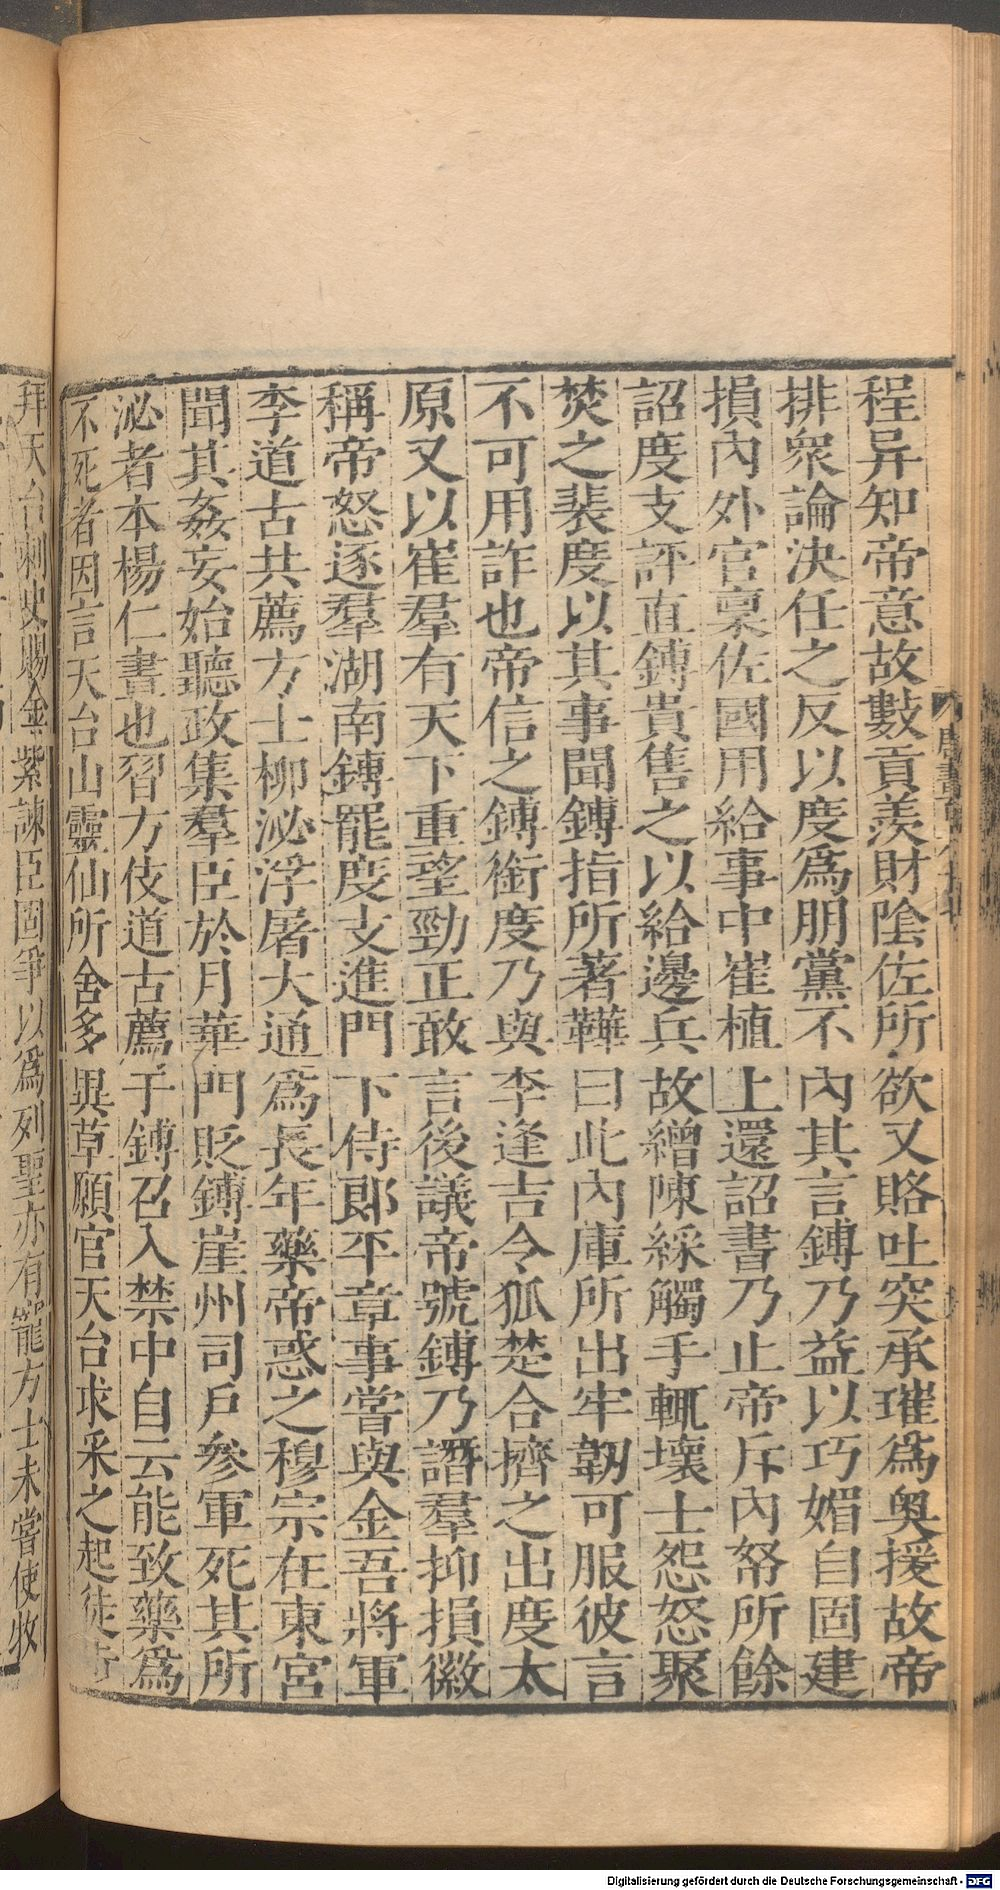 程异知帝意故數貢羨財陰佐所欲又賂吐突承璀爲奥援故帝
排衆論決任之反以度爲朋黨不內其言鎛乃益以巧媚自固建
損內外官稟佐國用給事中崔植上還詔書乃止帝斥內帑所餘
詔度支評直鎛貴售之以給邊兵故繒陳綵觸手輒壞士怨怒聚
焚之裴度以其事聞鎛指所著鞾曰此內庫所出牢韌可服彼言
不可用詐也帝信之鎛銜度乃與李逢吉令狐楚合擠之出度太
原又以崔羣有天下重望勁正敢言後議帝號鎛乃譖羣抑損徽
稱帝怒逐羣湖南鎛罷度支進門下侍郎平章事嘗與金吾將軍
李道古共薦方士柳泌浮屠大通爲長年藥帝惑之穆宗在東宮
聞其姦妄始聽政集羣臣於月華門貶鎛崖州司戶參軍死其所
泌者本楊仁晝也習方伎道古薦于鎛召入禁中自云能致藥爲
不死者因言天台山靈仙所舍多異草願官天台求采之起徒
拜天台刺史賜金紫諫臣固爭以爲列聖亦有寵方士未嘗使牧
Digitalisierung gefördert durch die Deutsche Forschungsgemeinschaft - DFG